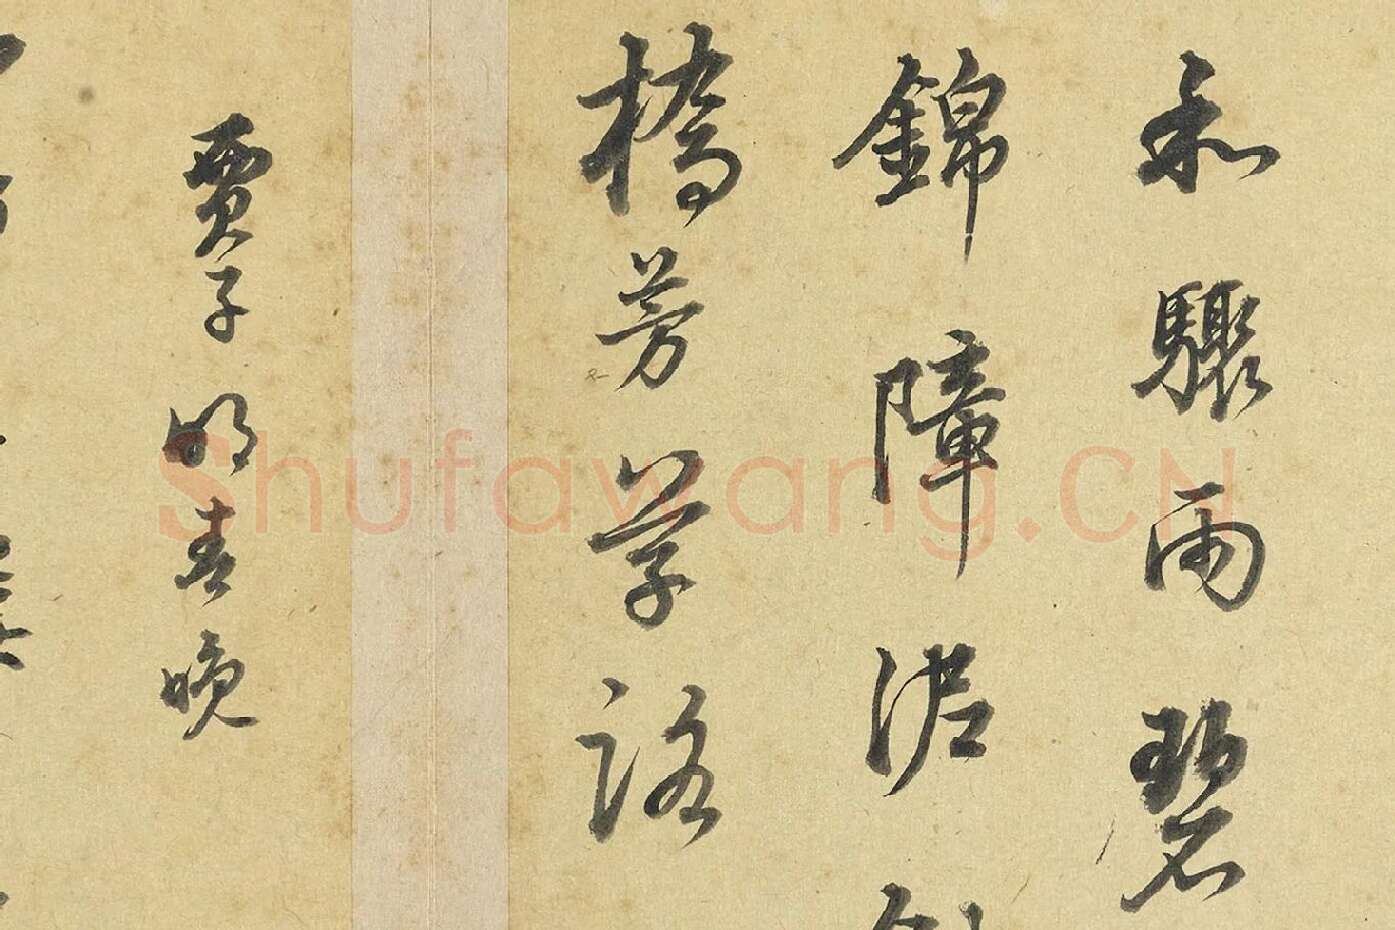 和驟雨碧
錦障泥
橋芳草路
賈子明春晚
Shufawang.CN